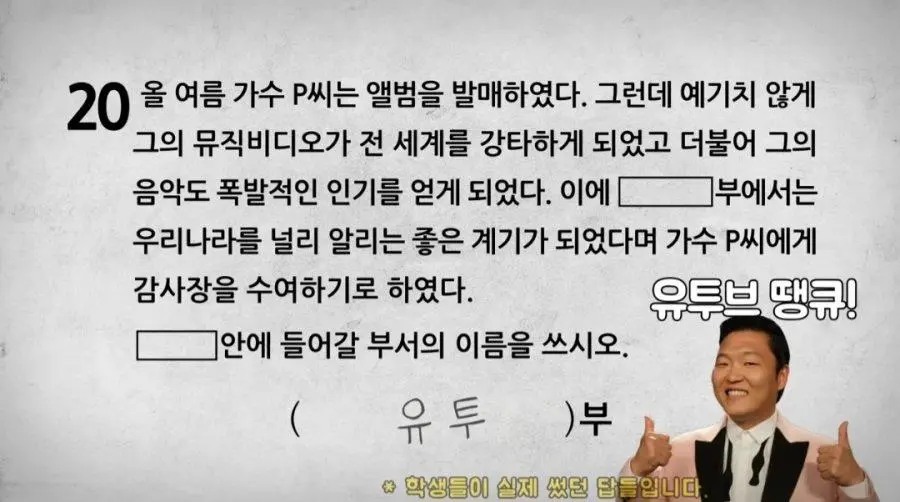 20 올 여름 가수 P씨는 앨범을 발매하였다. 그런데 예기치 않게
그의 뮤직비디오가 전 세계를 강타하게 되었고 더불어 그의
음악도 폭발적인 인기를 얻게 되었다. 이에 부에서는
우리나라를 널리 알리는 좋은 계기가 되었다며 가수 P씨에게
감사장을 수여하기로 하였다.
유투브 땡큐!
안에 들어갈 부서의 이름을 쓰시오.
( 유투 )부
* 학생들이 실제 썼던 답들입니다